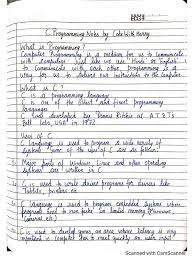 C Programming Notes by CodeWithHarry
What is Programming?
Computer Programming is a medium for us to communicate
with computers. Just like we use Hindi or English
to communicate with each other, programming is a
way for us to deliver our instructions to the computer.
What is C?
C is a programming language
C is one of the oldest and finest programming
languages
C was developed by Dennis Ritchie at AT&T's
Bell Labs, USA in 1972
Uses of C
C language is used to program a wide variety of
systems. Some of the uses of C are as follows:
Major parts of Windows, Linux and other operating
systems are written in C
C is used to write driver programs for devices like
Tablets, printers etc.
C language is used to program embedded systems where
programs need to run faster in limited memory (Microwave,
Cameras etc.)
C is used to develop games, an area where latency is very
important i.e. Computer has to react quickly on user input
Scanned with CamScanner